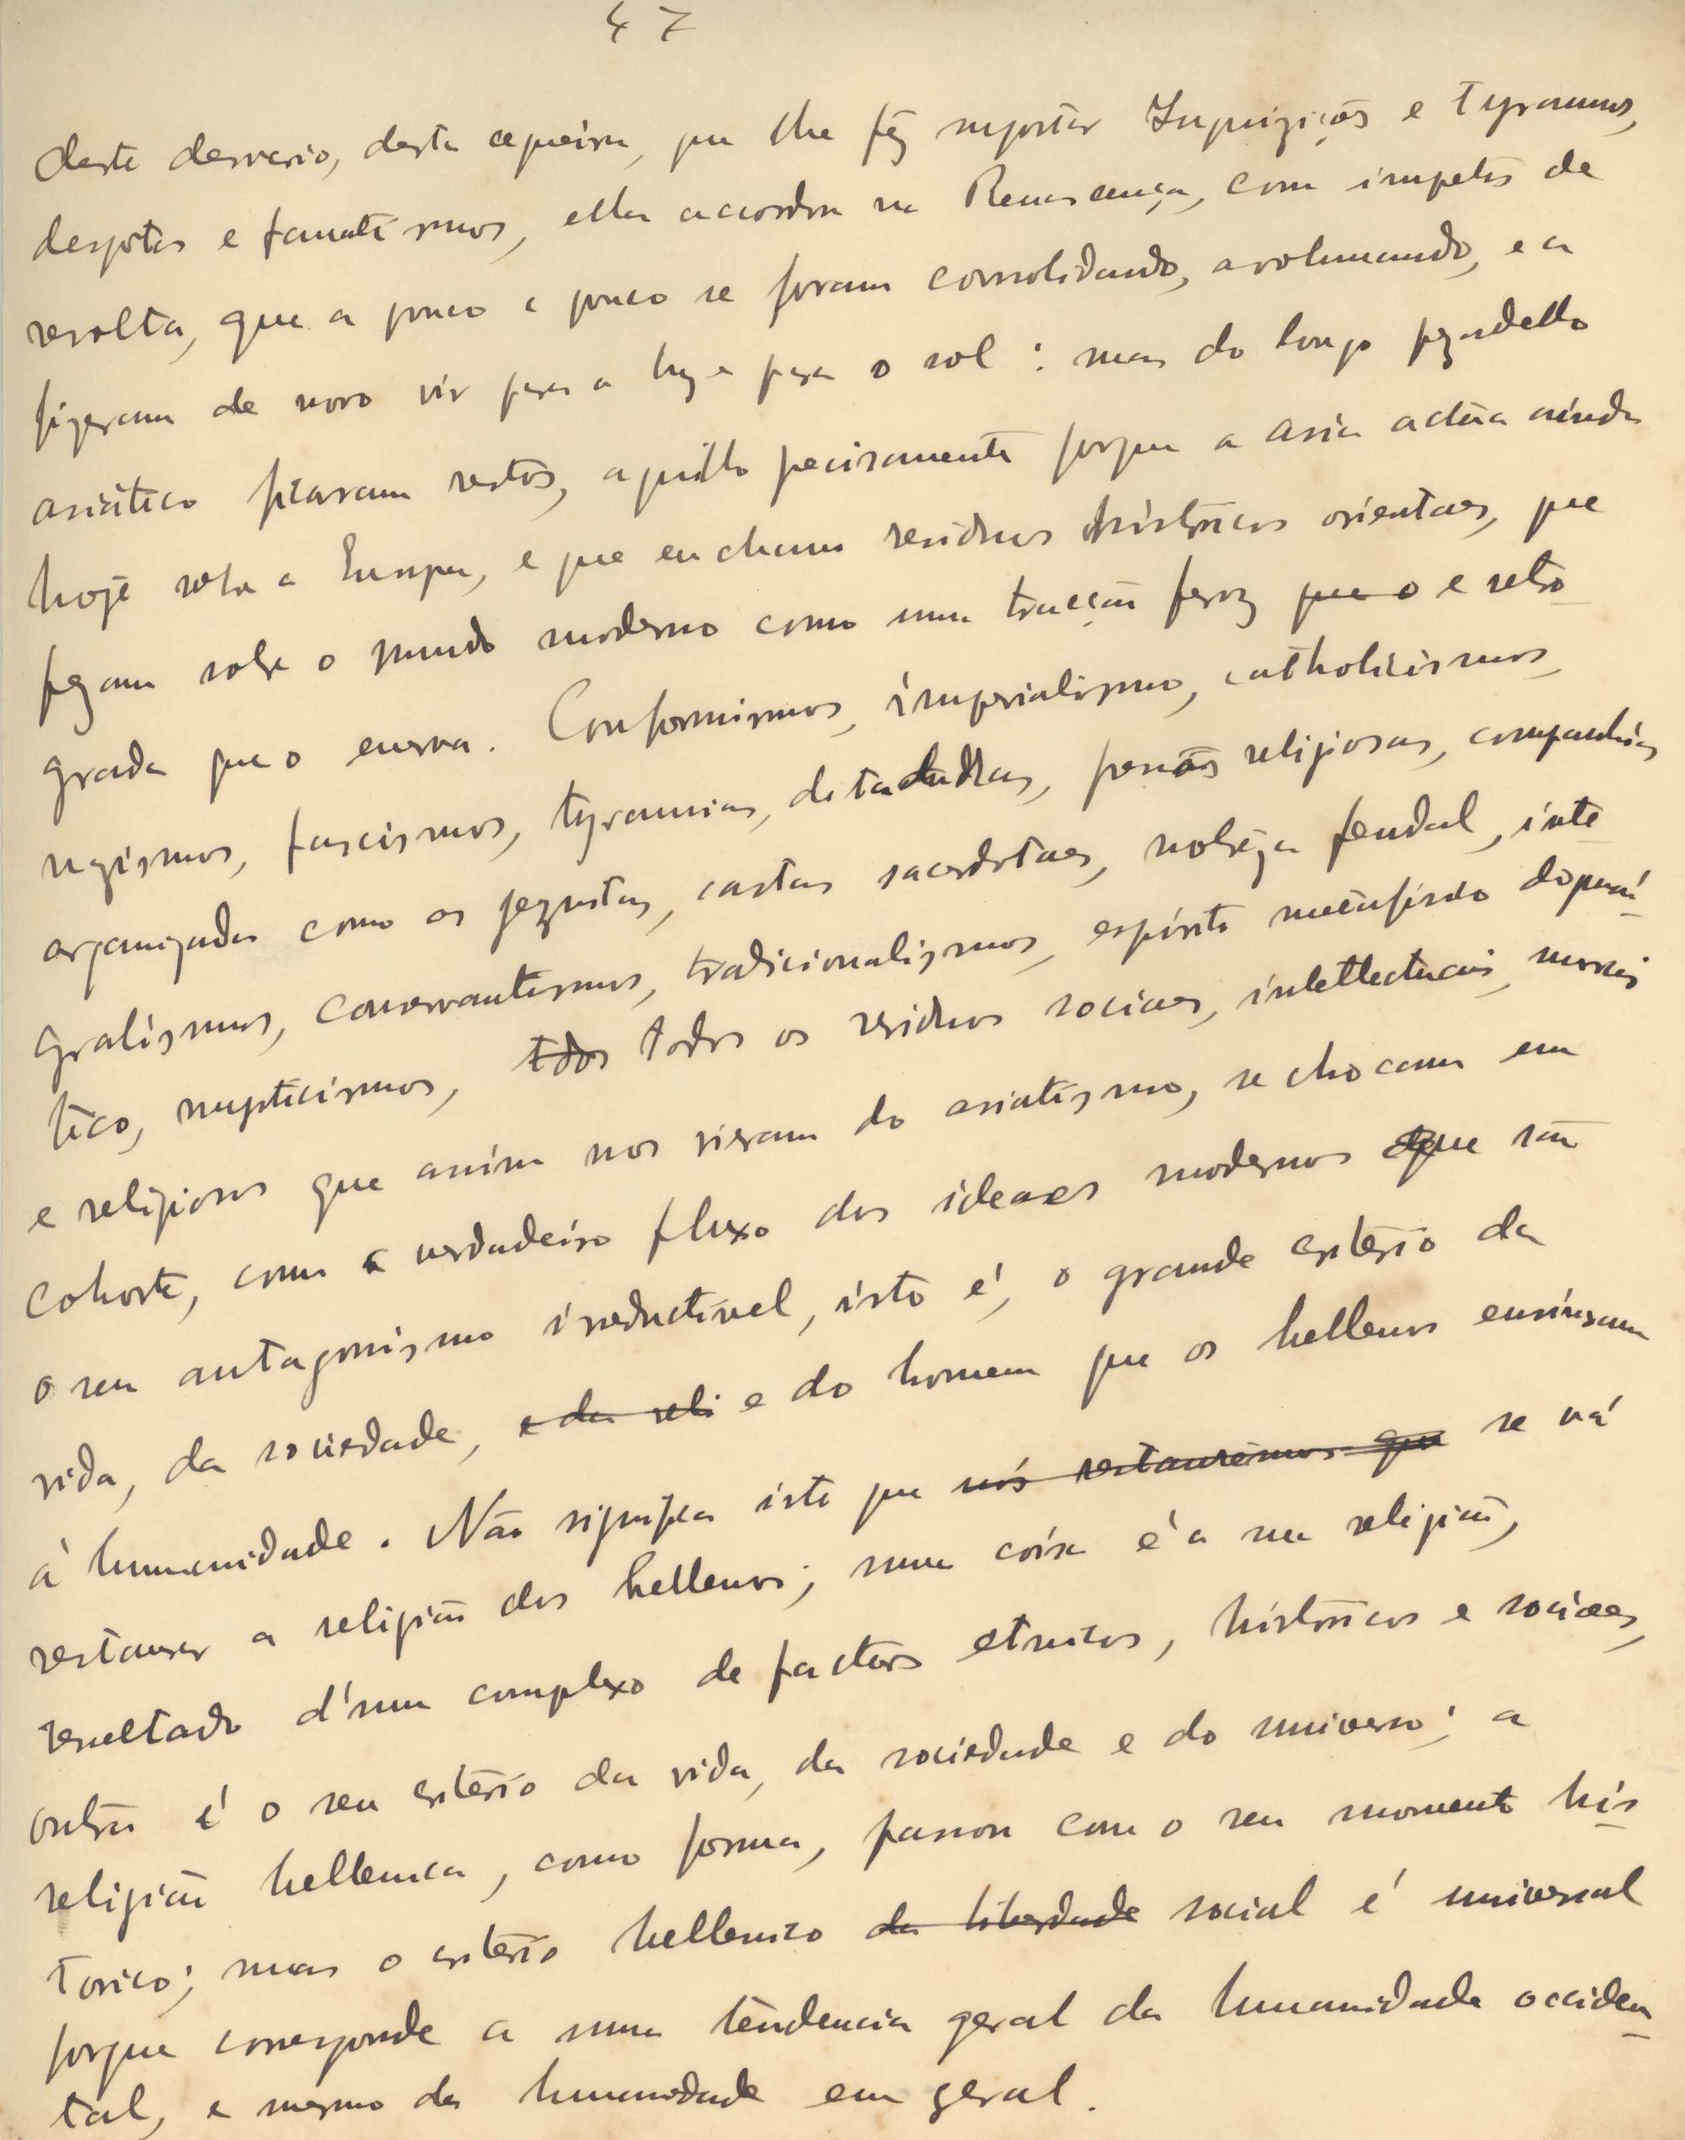 47
deste desvario, desta cegueira, que lhe fez suportar Inquizições e tyrannos,
despotas e fanatismos, ella accordou na Renascença, com impetos de
revolta, que a pouco e pouco se foram consolidando, avolumando, e a
fizeram de novo vir para a luz e para o sol : mas do longo pezadello
asiático ficaram restos, aquillo precisamente porque a Asia actúa ainda
hoje sobre a Europa, e que enchem residuos históricos orientaes, que
pezam sobre o mundo moderno como uma tracção feroz que o e retro
grada que o enerva. Conformismos, imperialismo, catholicismos,
nazismos, fascismos, tyrannias, ditaduras, religiosas, companhias
organizadas como os jezuitas, castas sacerdotaes, nobreza feudal, inte
gralismos, conservantismos, tradicionalismos, espirito metafisico dogmá
tico, mysticismos, tdos todos os residuos sociaes, intellectuais, morais
e religiosos que assim nos vieram do asiatismo, se chocam em
cohorte, com o verdadeiro fluxo dos ideaes modernos que são
o seu antagonismo irreductivel, isto é, o grande criterio da
vida, da sociedade, e da reli e do homem que os hellenos ensinaram
á humanidade. Não significa isto que nós restauremos que se vá
restaurar a religião dos hellenos; uma coisa é a sua religião,
resultado d'um complexo de factores etnicos, históricos e sociaes,
outra é o seu criterio da vida, da sociedade e do universo; a
religião hellenica, como forma, passou com o seu momento his
torico; mas o criterio hellenico da liberdade social é universal
porque corresponde a uma tendencia geral da humanidade occiden
tal, e mesmo da humanidade em geral.